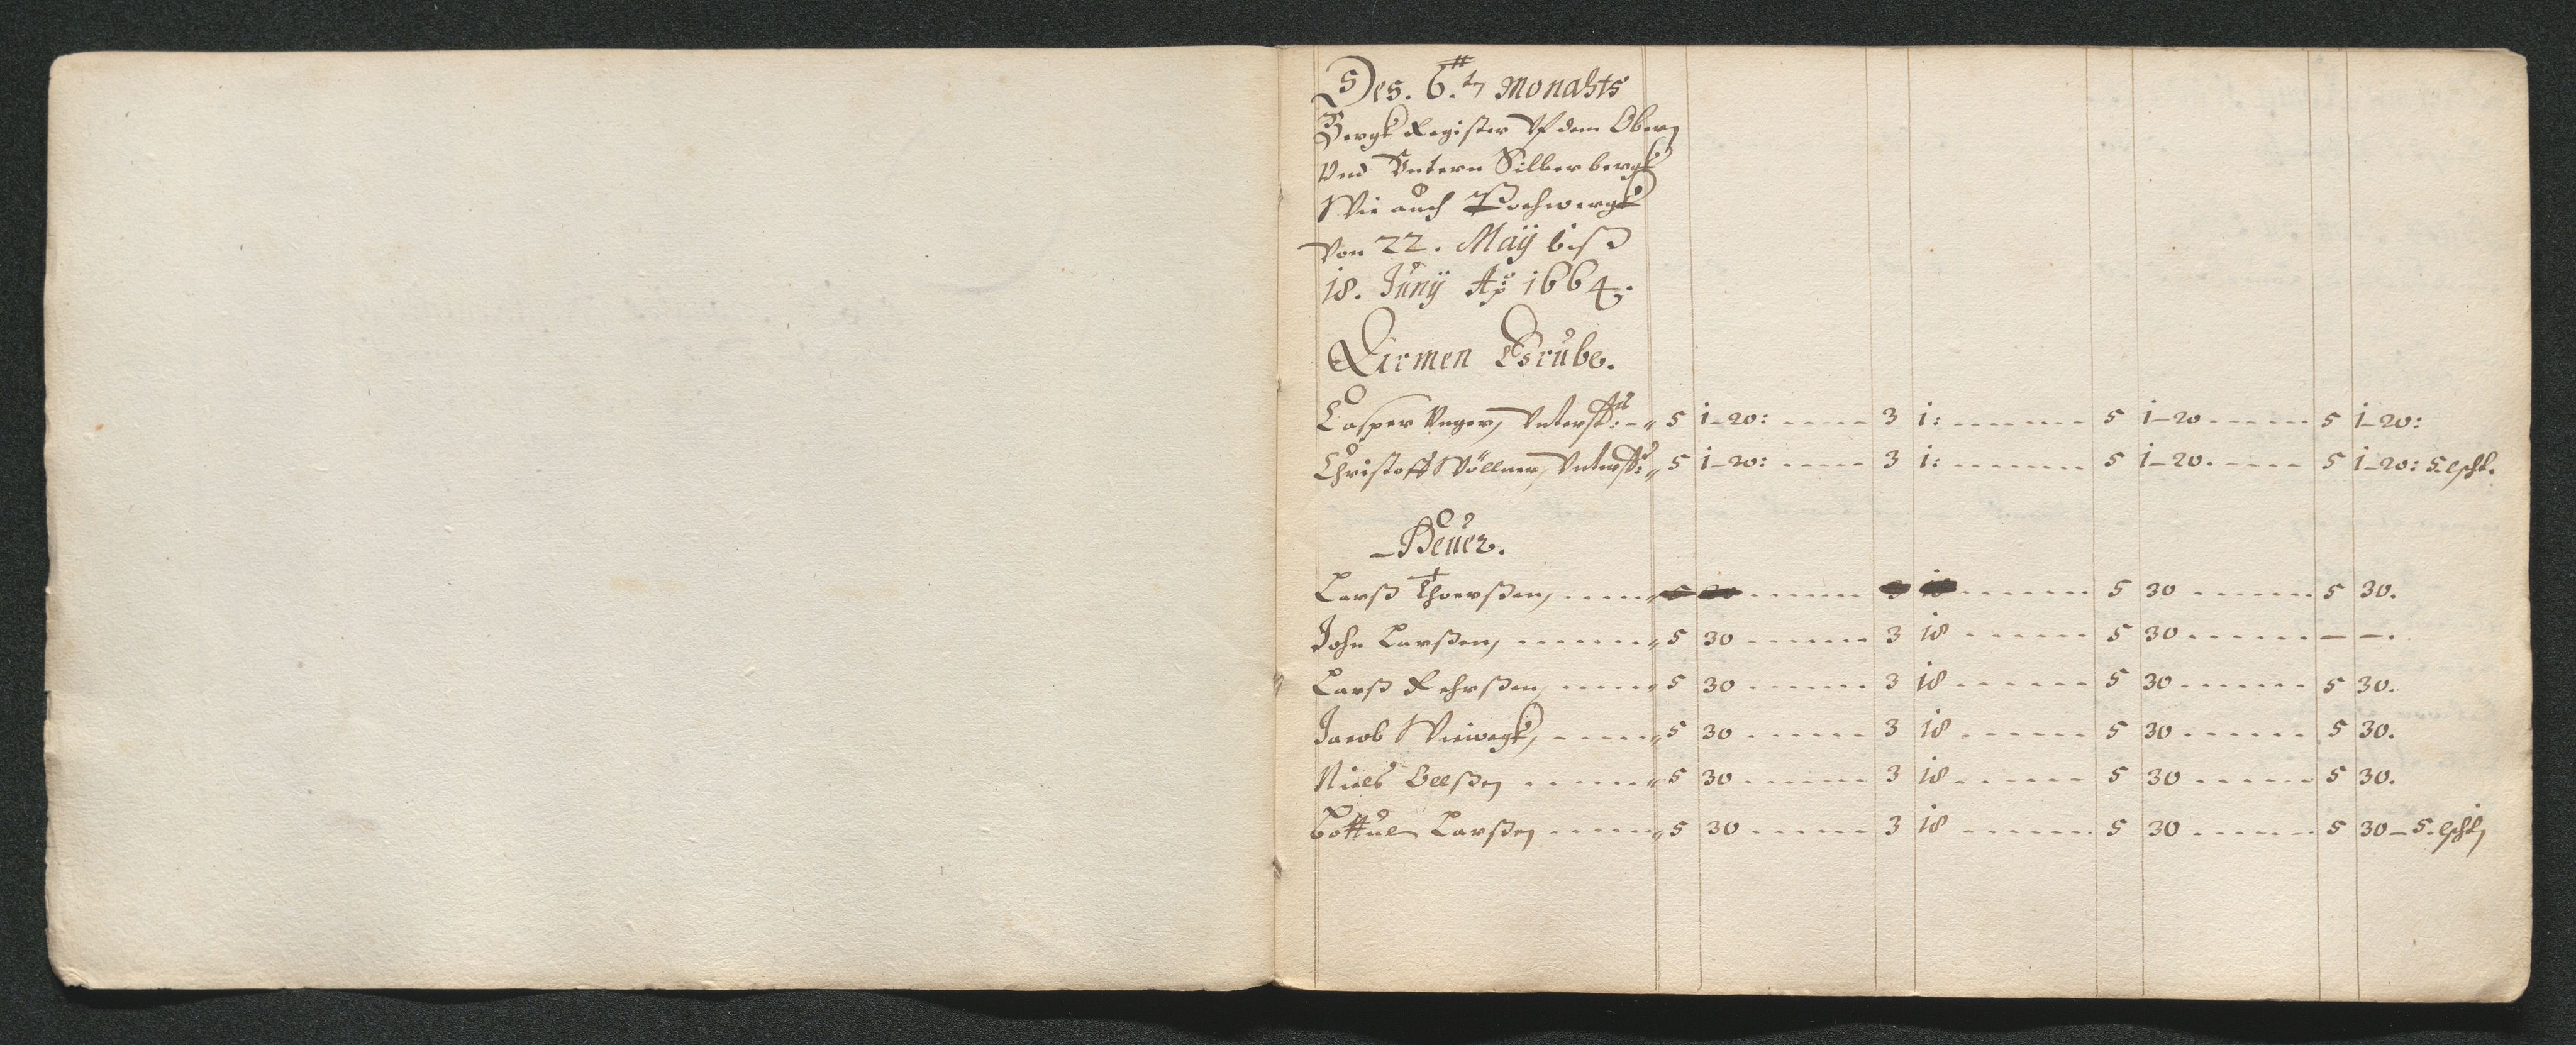 Des. 6.tn Monahts
Bergk Register Vf dem Obern
Vnd Vntern Silberbergk
Wie auch Pochwergk
Von 22. Maÿ biß
18. Junÿ Ao 1664.
Armen Grube.
Casper Unger, Unterst: 5 1-20: 3 1: 5 1-20 5 1-20:
Christoff Wöllner, Unterst: 5 1-20: 3 1: 5 1-20. 5 1-20:
Heuer.
Larß Thorßen, 5 30 5 30.
John Larßen, 5 30 3 18 5 30 — —.
Larß Rehrßen, 5 30 3 18 5 30 5 30.
Jacob Viewegk, 5 30 3 18 5 30 5 30.
Niels Oelßen 5 30 3 18 5 30 5 30.
Larßen 5 30 3 18 5 30 5 30